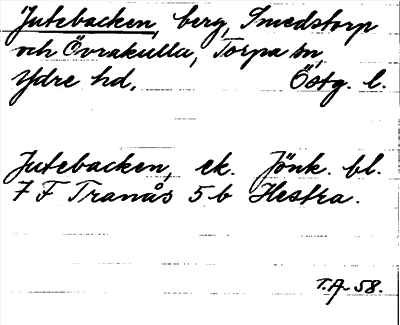 Jutebacken, berg, Smedstorp
och Övrakulla, Torpa sn,
Ydre hd, Östg. l.
Jutebacken, ek. Jönk. bl.
7 F Tranås 5 b Hestra.
T.A-58.